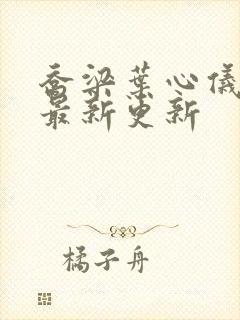 乔梁葉心儀
最新更新
橘子舟